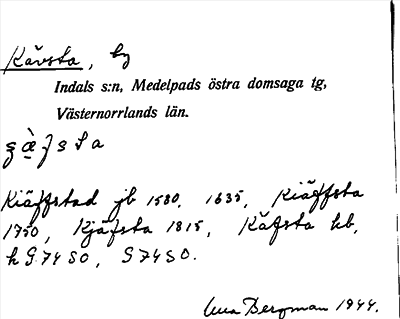 Kävsta, by
Indals s:n, Medelpads östra domsaga tg,
Västernorrlands län.
Kiäffstad jb 1580, 1635, Kiäffsta
1750, Kjäfsta 1815, Käfsta kb,
k G 74 SO, S 74 SO.
Bergman 1944.